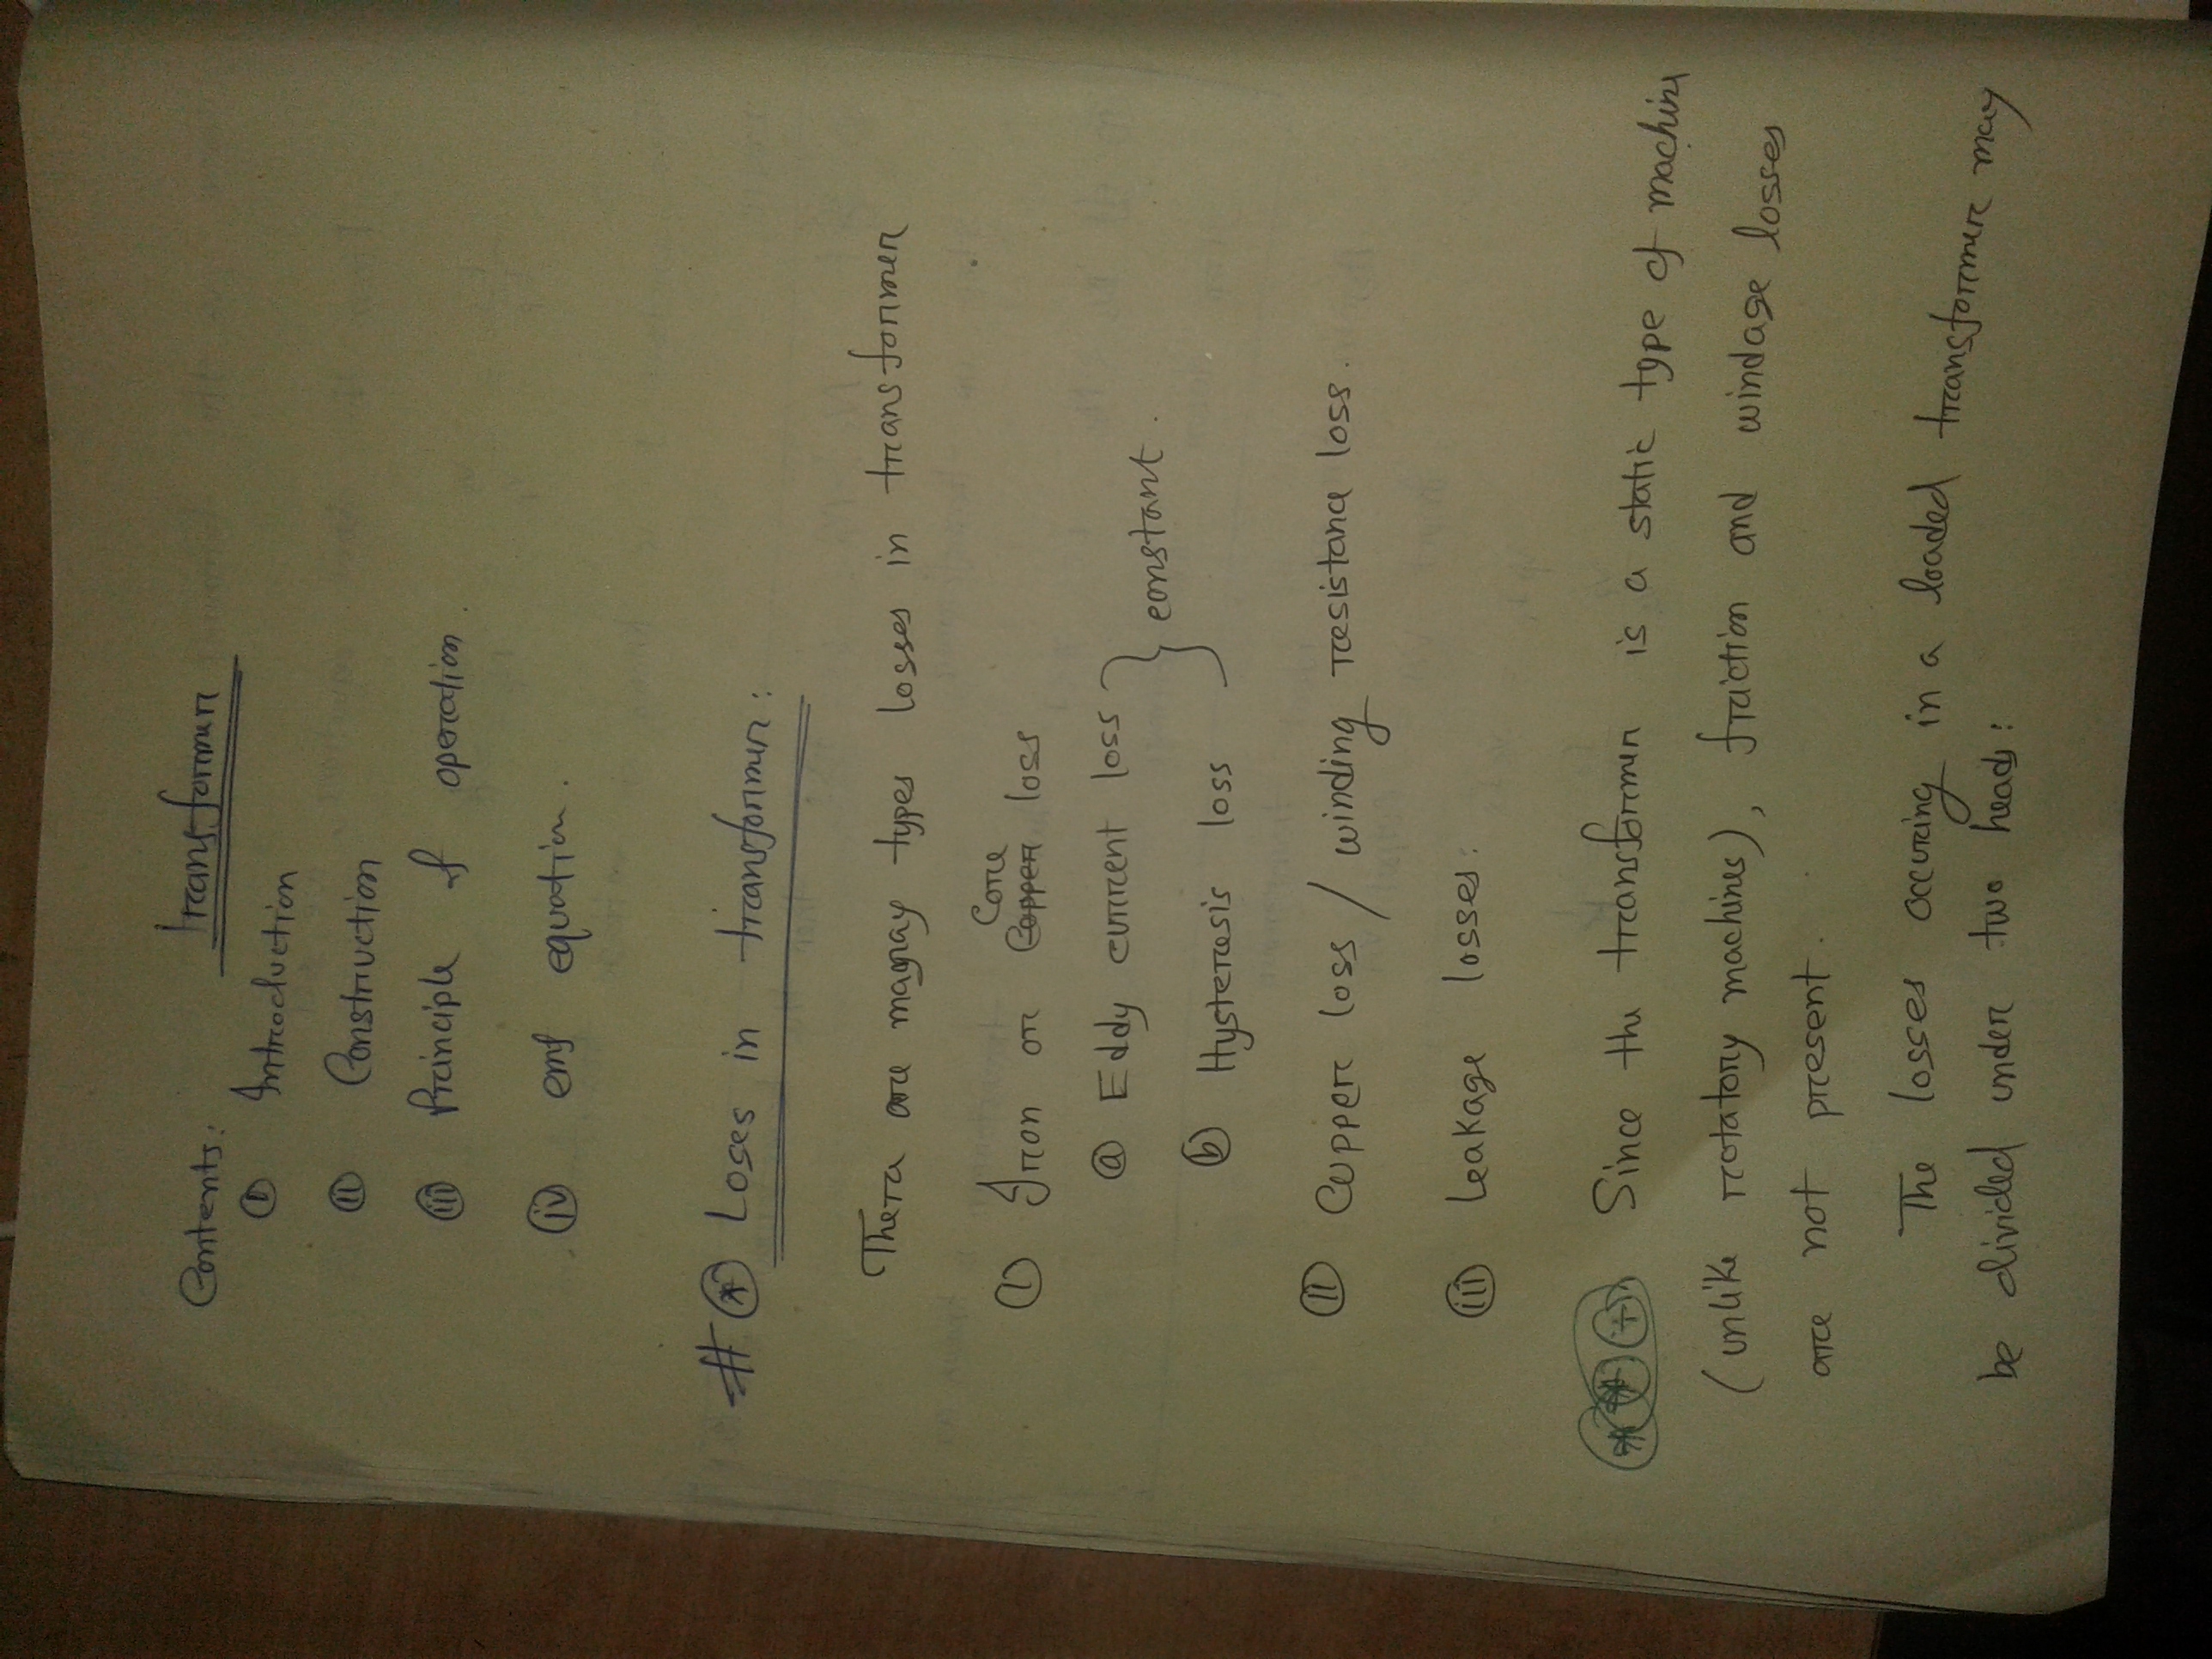 Contents: Transformer
(i) Introduction
(ii) Construction
(iii) Principle of operation.
(iv) emf equation.
# * Loses in transformer:
There are magnay types losses in transformer
Core
(i) Iron or Copper loss
(a) Eddy current loss
} constant.
(b) Hysteresis loss
(ii) Cupper loss / winding resistance loss.
(iii) Leakage losses:
* * + Since the transformer is a static type of machine
(unlike rotatory machines), friction and windage losses
are not present.
The losses occuring in a loaded transformer may
be divided under two heads: